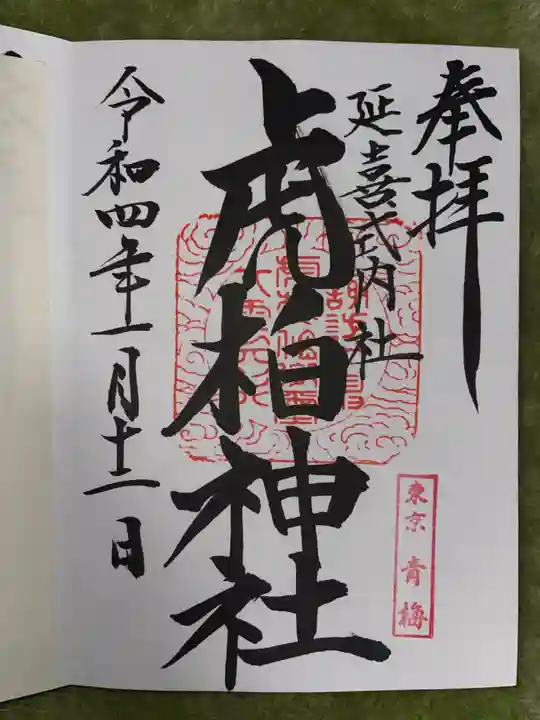 奉拝
延喜式内社
虎柏神社
令和四年一月十一日
東京 青梅